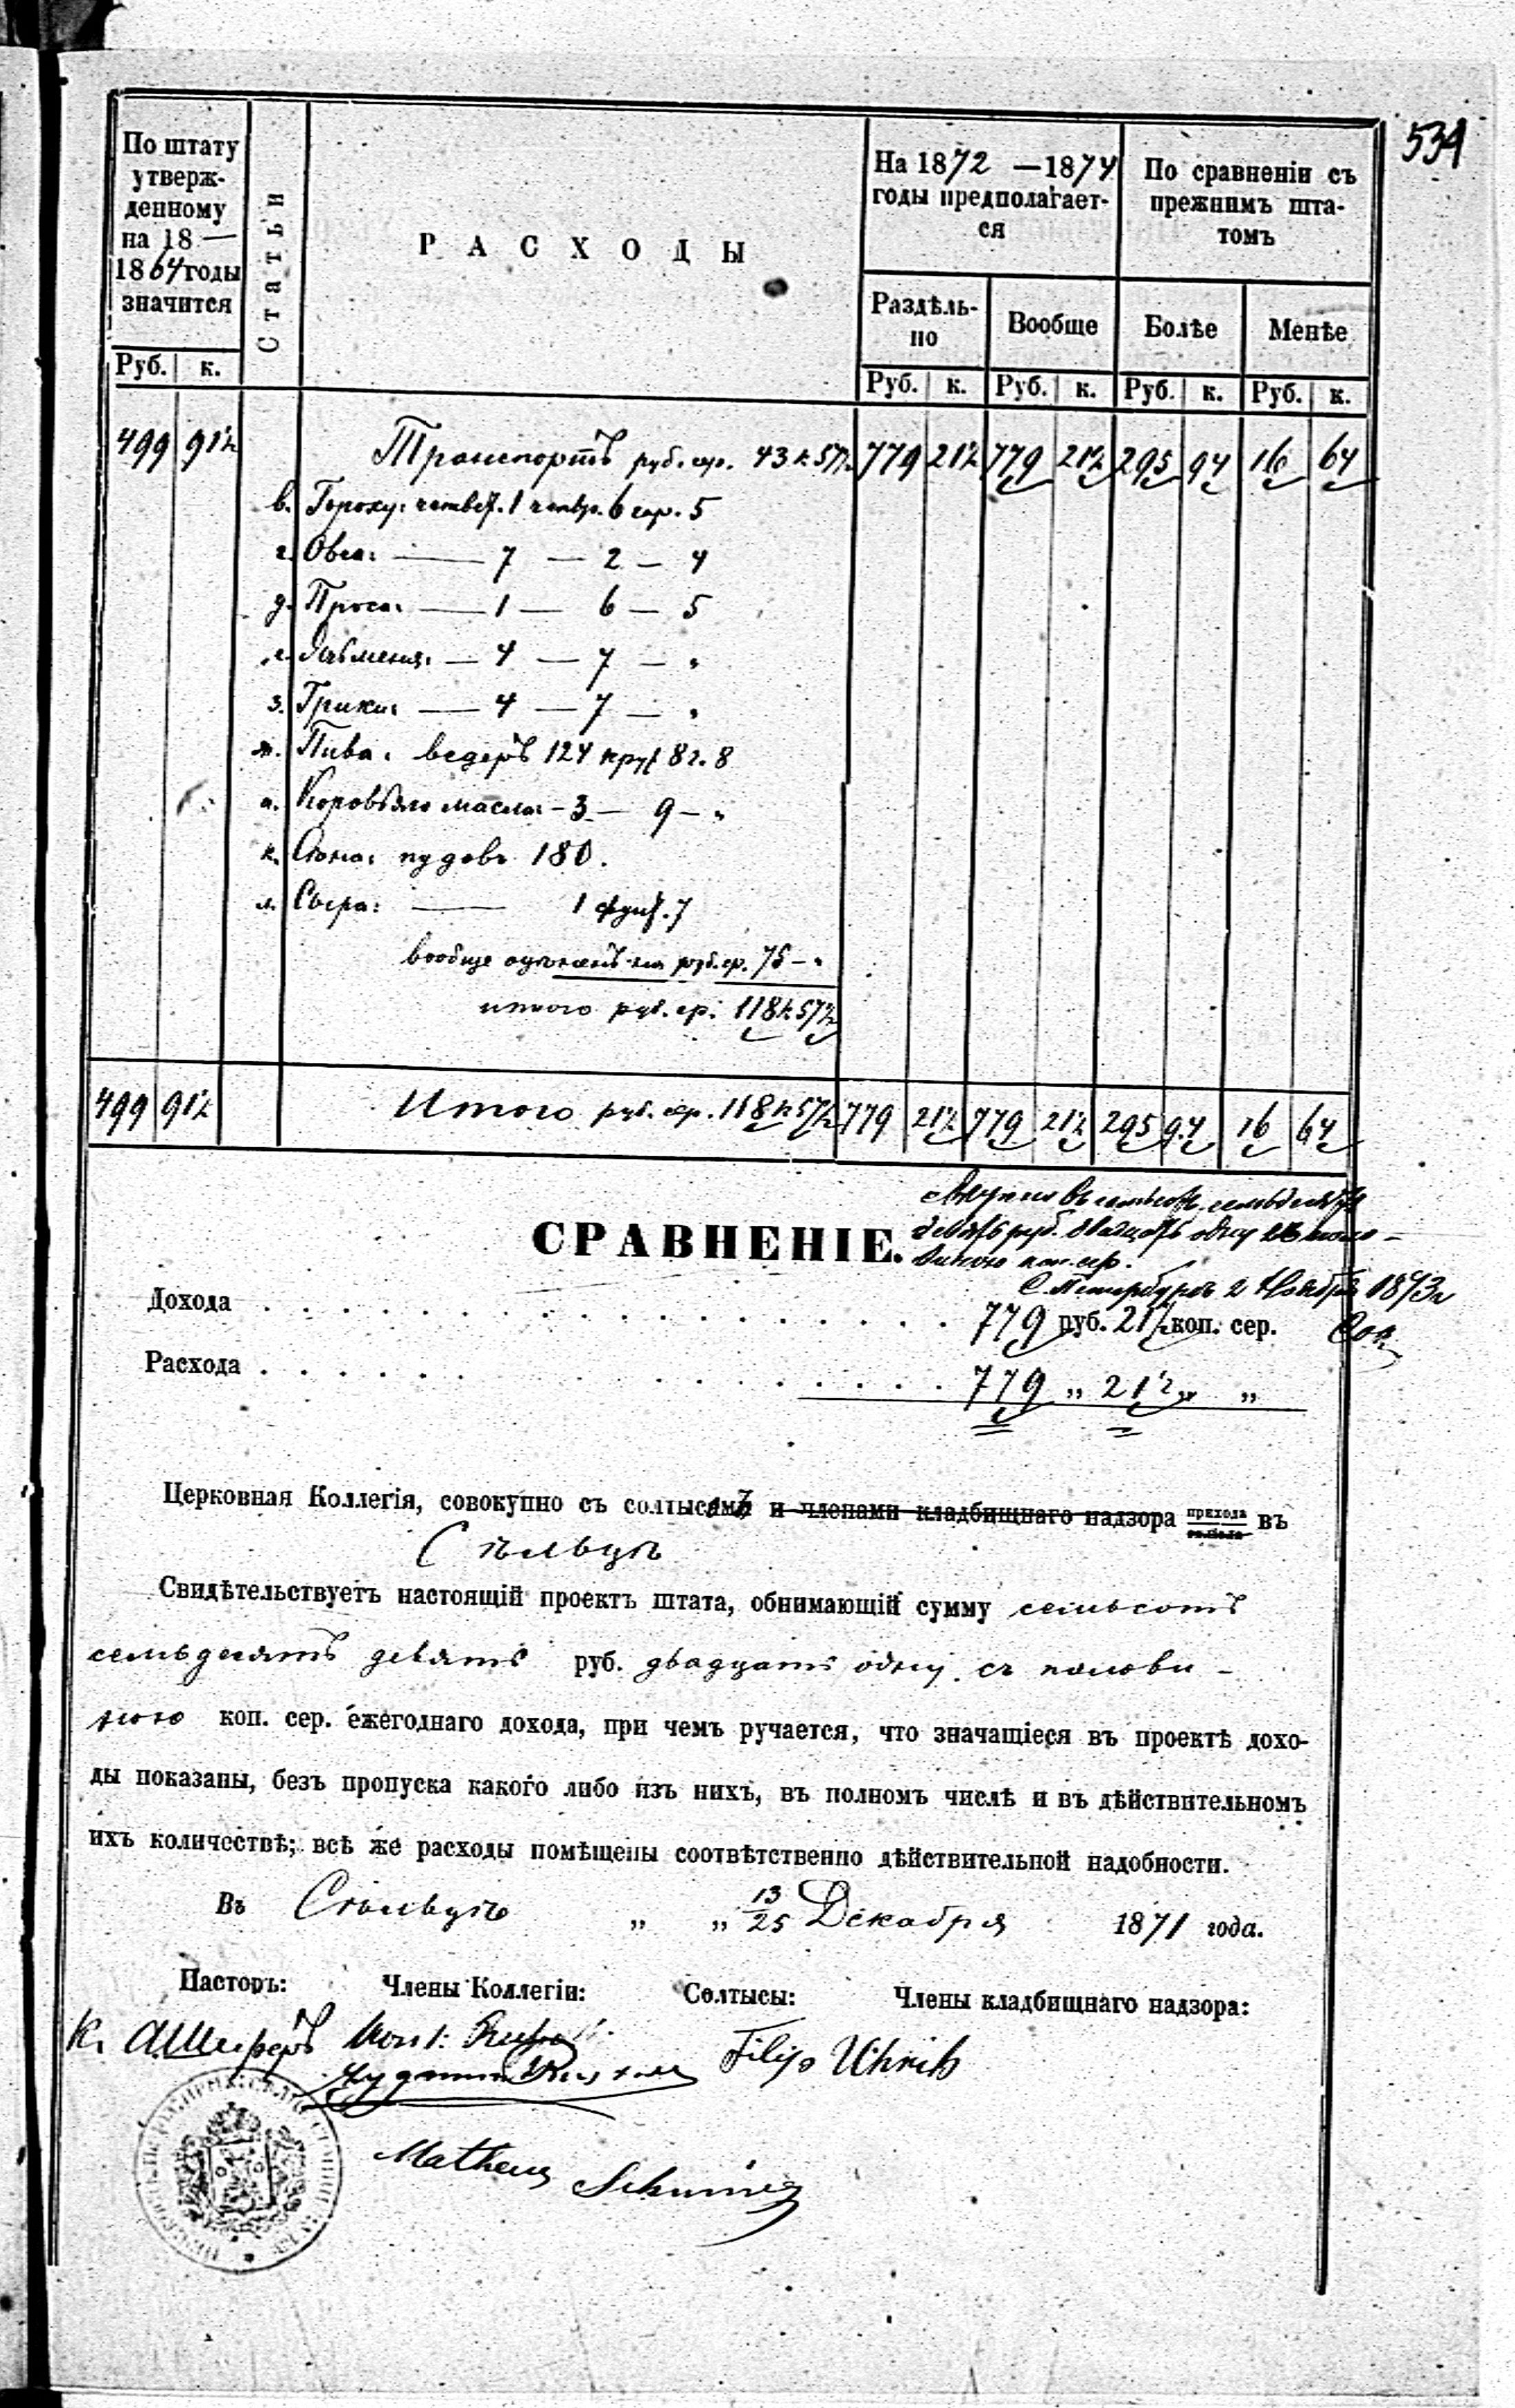 534
По штату утверж-
денному
на 18 —
1864 годы
значится
Статьи
РАСХОДЫ
На 1872 — 1874
годы предполагает-
ся
По сравненіи съ
прежнимъ шта-
томъ
Раздѣль-
но
Вообще
Болѣе
Менѣе
Руб. к. Руб. к. Руб. к. Руб. к. Руб. к.
499 91½ Транспортъ руб. сер. 43 к 57½ 779 21½ 779 21½ 295 94 16 64
в. Гороху: четвер. 1 четвр. 6 гар. 5
г. Овса: — 7 — 2 — 4
д. Проса: — 1 — 6 — 5
е. Ячменя: — 4 — 7 — "
з. Грики: — 4 — 7 — "
ж. Пива: ведеръ 124 круж 82. 8
Коровьяго масла: — 3 — 9 — "
к. Сѣна: пудовъ 180.
л. Сыра: — 1 фунт. 7
вообще оцѣненъ на руб. ср. 75 — "
итого руб. ср: 118 к 57½
499 91½ Итого руб. сер. 118 к 57½ 779 21½ 779 21½ 295 94 16 64
семьсотъ семьдесятъ
девять руб. двадцать одну съ поло-
виною коп. сер.
С. Петербургъ 2 Ноября 1873 г
СРАВНЕНІЕ.
Дохода . . . . . . . . . . . . 779 руб. 21½ коп. сер.
Расхода . . . . . . . . . . . . 779 „ 21½ „ „
Церковная Коллегія, совокупно съ солтысамъ и членами кладбищнаго надзора прихода въ
Стѣльцѣ
Свидѣтельствуетъ настоящій проектъ штата, обнимающій сумму семьсотъ
семьдесятъ девять руб. двадцать одну съ полови-
ною коп. сер. ежегоднаго дохода, при чемъ ручается, что значащіеся въ проектѣ дохо-
ды показаны, безъ пропуска какого либо изъ нихъ, въ полномъ числѣ и въ дѣйствительномъ
ихъ количествѣ; всѣ же расходы помѣщены соотвѣтственно дѣйствительной надобности.
Въ Стольцѣ „ „ 13/25 Декабря 1871 года.
Пасторъ: Члены Коллегіи: Солтысы: Члены кладбищнаго надзора:
Filip Uhrich
Matheus Schmidt